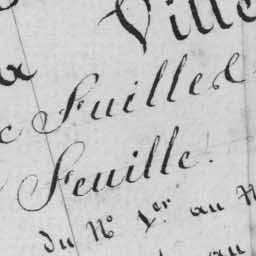 Ville
Fuilles
Feuille.
du N° 1.er au N
au